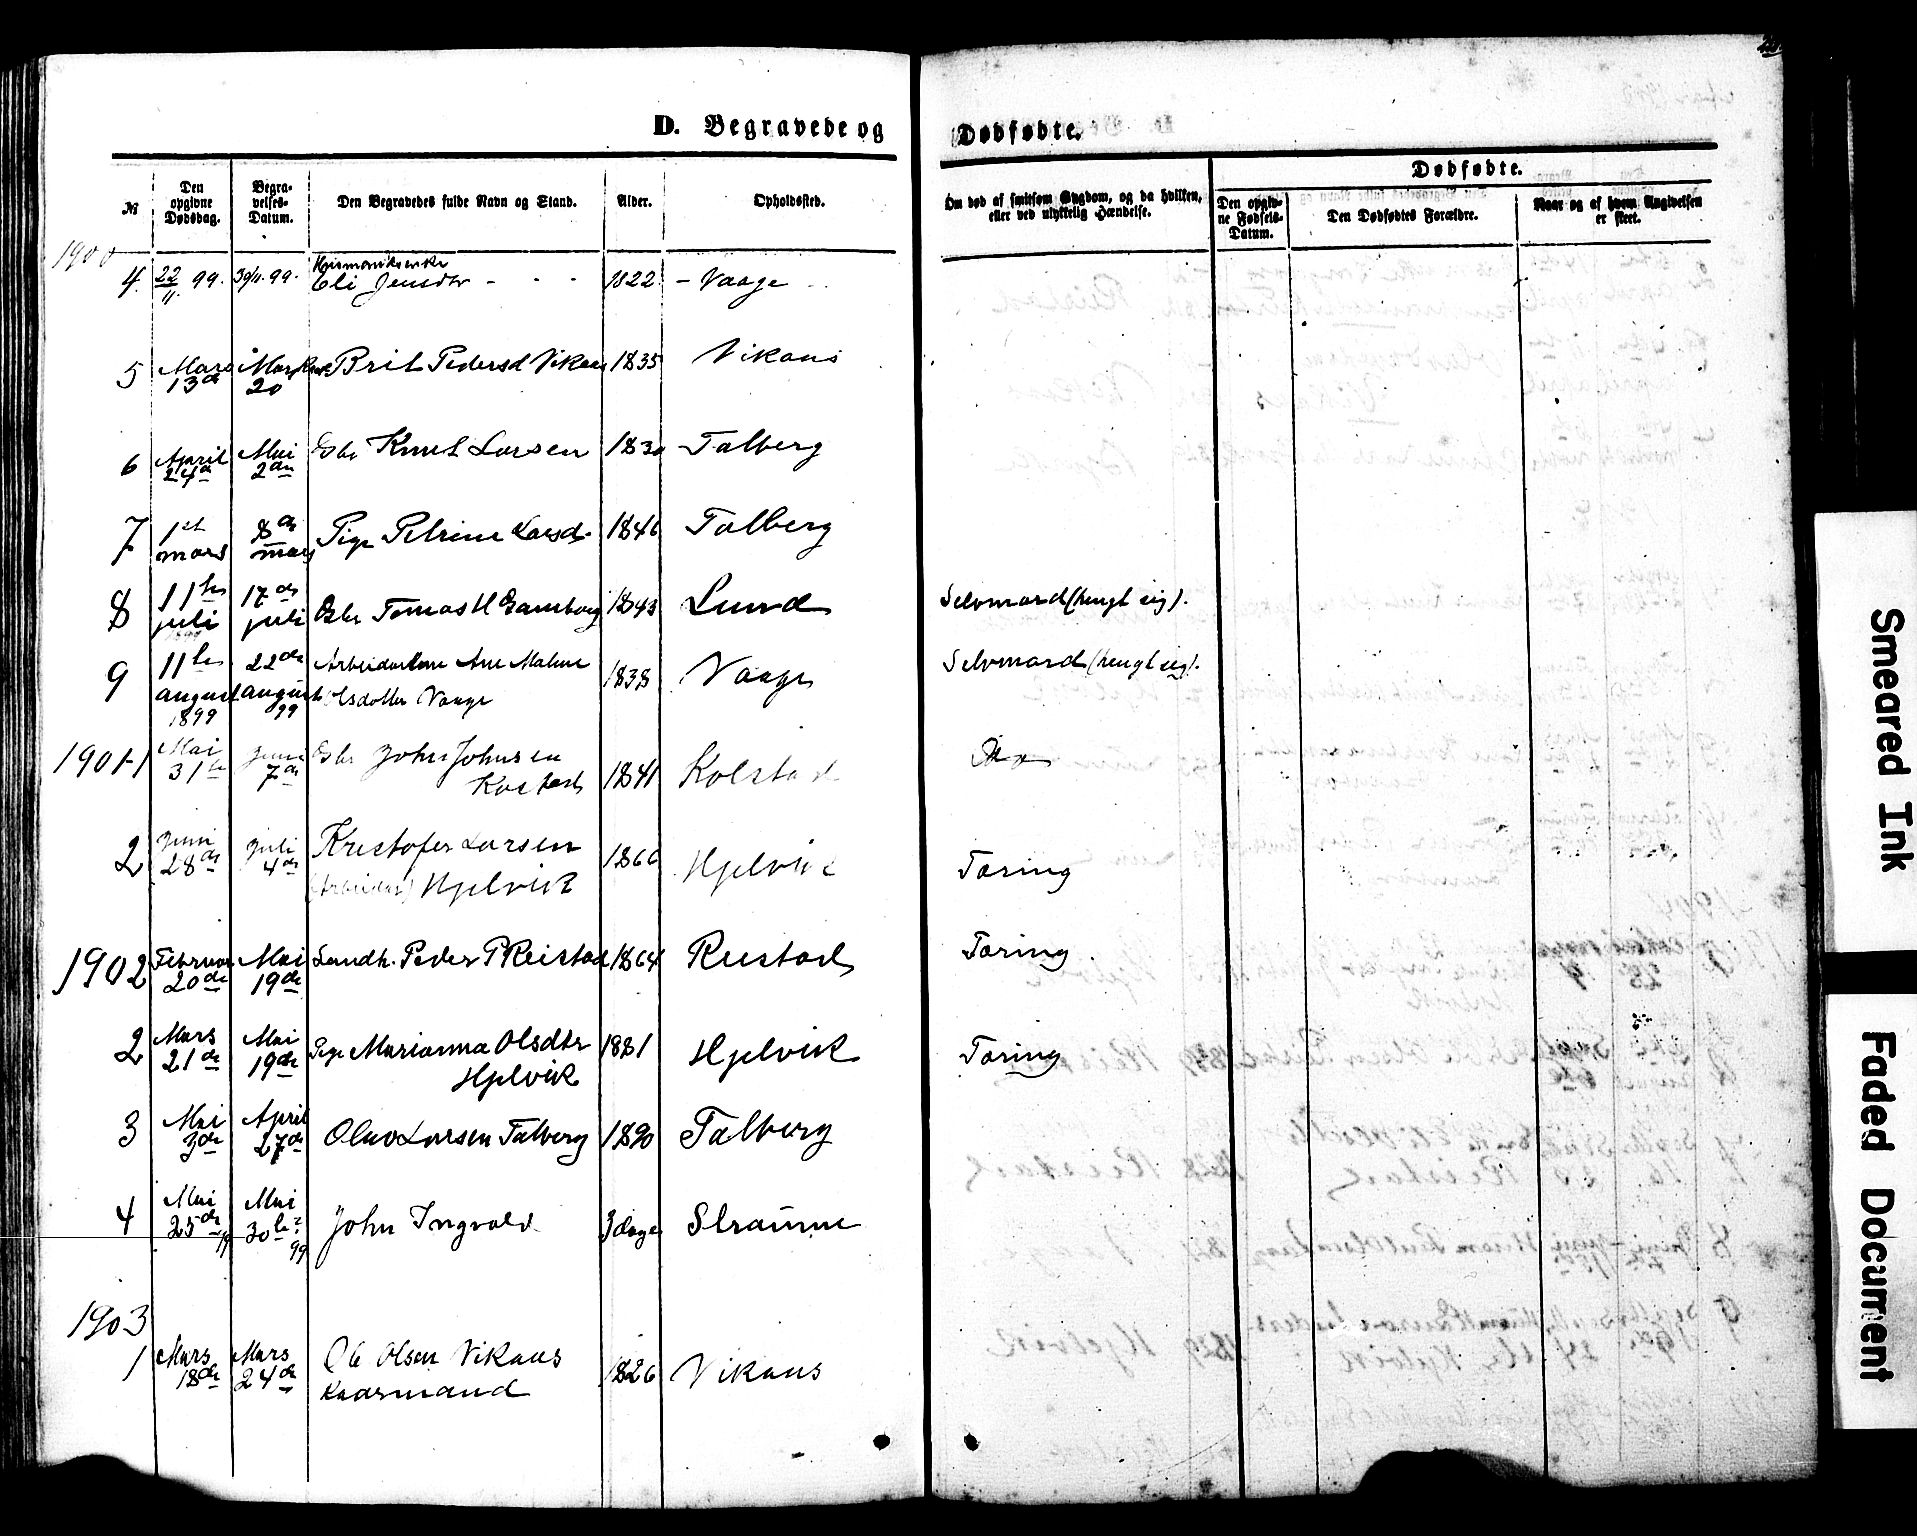 D. Begravede og Dødfødte.
№
Den opgivne Dødsdag.
Begravelses-Datum.
Den Begravedes fulde Navn og Stand.
Alder.
Opholdssted.
Om død af smitsom Sygdom, og da hvilken, eller ved ulykkelig Hændelse.
Dødfødte.
Den opgivne Fødsels-Datum.
Den Dødfødtes Forældre.
Naar og af hvem Angivelsen er skeet.
1900
4 22/11 99. 30/11. 99. Eli Jensdtr 1822 - Vaage
5 Mars 13de Mars 20 Brit Pedersd Vikaas 1835 Vikaas
6 April 24de Mai 2den Knut Larsen 1830 Talberg
7 1st mars 8de mars Pige Petrine Larsd. 1846 Talberg
8 11te juli 17de juli Tomas H 1843 Lund Selvmord (hengt sig).
9 11te august 1899 22de august 99 Ane Malene Olsdatter Vaage 1838 Vaage Selvmord (hengt sig).
1901 1 Mai 31te Juni 7de John Johnsen 1841 Kolstad
2 Juni 28de Juli 4de Kristofer Larsen (Arbeider) Hjelvik 1866 Hjelvik Tæring
1902 Februar 20de Mai 19de Landh. Peder P Reistad 1864 Reistad Tæring
2 Mars 21de Mai 19de Pige Marianna Olsdtr Hjelvik 1881 Hjelvik Tæring
3 Mai 3de April 27de Olav Larsen Talberg 1890 Talberg
4 Mai 25de Mai 30te 99 John Ingvald 3 dage Straume
1903
1 Mars 18de Mars 24de Ole Olsen Vikaas Kaarmand 1826 Vikaas
Smeared Ink
Faded Document